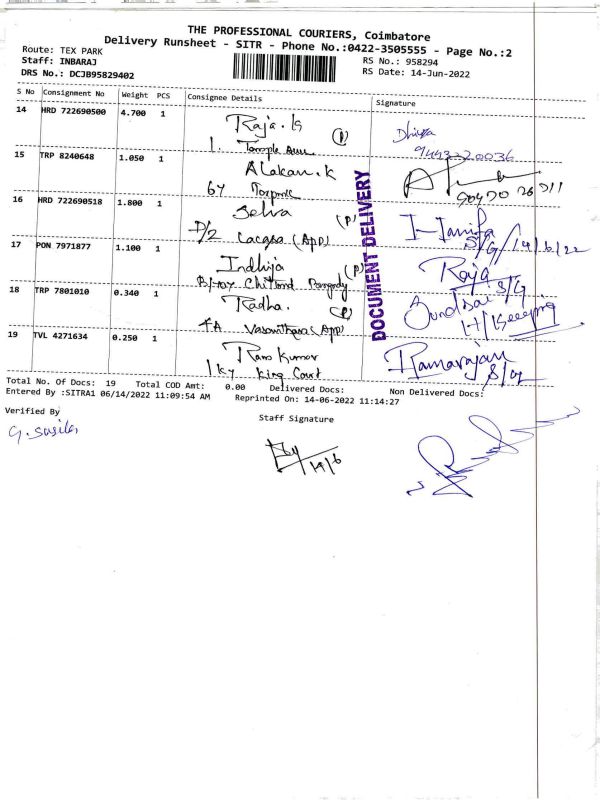 THE PROFESSIONAL COURIERS, Coimbatore
Delivery Runsheet - SITR - Phone No.:0422-3505555 - Page No.:2
Route: TEX PARK
Staff: INBARAJ
DRS No.: DCJB95829402
RS No.: 958294
RS Date: 14-Jun-2022
S No Consignment No Weight PCS Consignee Details Signature
14 HRD 722690500 4.700 1
Raja.G
(P)
1.
9443220036
15 TRP 8240648 1.050 1
Alakan.K
64 Texpark
16 HRD 722690518 1.800 1
Selva
(P)
D/2 (App)
S/G/14/6/22
17 PON 7971877 1.100 1
Indhija
(P)
Raja
S/G
18 TRP 7801010 0.340 1
Radha.
(P)
4A Vasanthara (App)
H/Keeping
19 TVL 4271634 0.250 1
Ram Kumar
King Court
Ramarajan
DOCUMENT DELIVERY
Total No. Of Docs: 19 Total COD Amt: 0.00 Delivered Docs: Non Delivered Docs:
Entered By :SITRA1 06/14/2022 11:09:54 AM Reprinted On: 14-06-2022 11:14:27
Verified By
Staff Signature
G. Susila
14/6